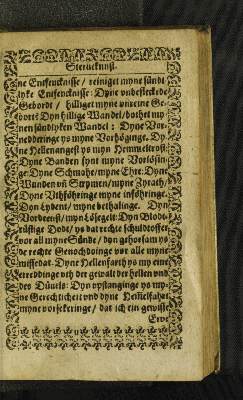 Sterücknst.
ne Entfenckniſſe / reiniget myne ſündt
lyke Entfenckniſſe: Dyne vnbeflecfede
Gebordt / hilliget myne vnreine Ge-
bort: Dyn hillige Wandel / bothet my-
nen ſündtlyken Wandel: Dyne Vor-
nedderinge ys myne Vorhöginge. Dy-
ne Hellenangeſt ys myn Hemmeltroſt:
Dyne Banden ſynt myne Vorlöſin-
ge: Dyne Schmahe / myne Ehre: Dyne
Wunden vñ Strymen / myne Zyrath /
Dyne Vthföhringe myne inföhringe.
Dyn Lydent / myne bethalinge. Dyn
Vordeenſt / myn Löſegelt: Dyn Blodt-
rüſtige Dodt / ys dat rechte ſchuldtoffer
vor all myne Sünde / dyn gehorſam ys
de rechte Genochdoinge vor alle myne
miſſedat. Dyne Hellenfarth ys my eine
erreddinge vth der gewalt der hellen vnd
des Düuels: Dyn vpſtanginge ys my-
ne Gerechticheit vnd dyne Hemelfahrt
myne vorſekeringe / dat ich ein gewiſſe
Erve